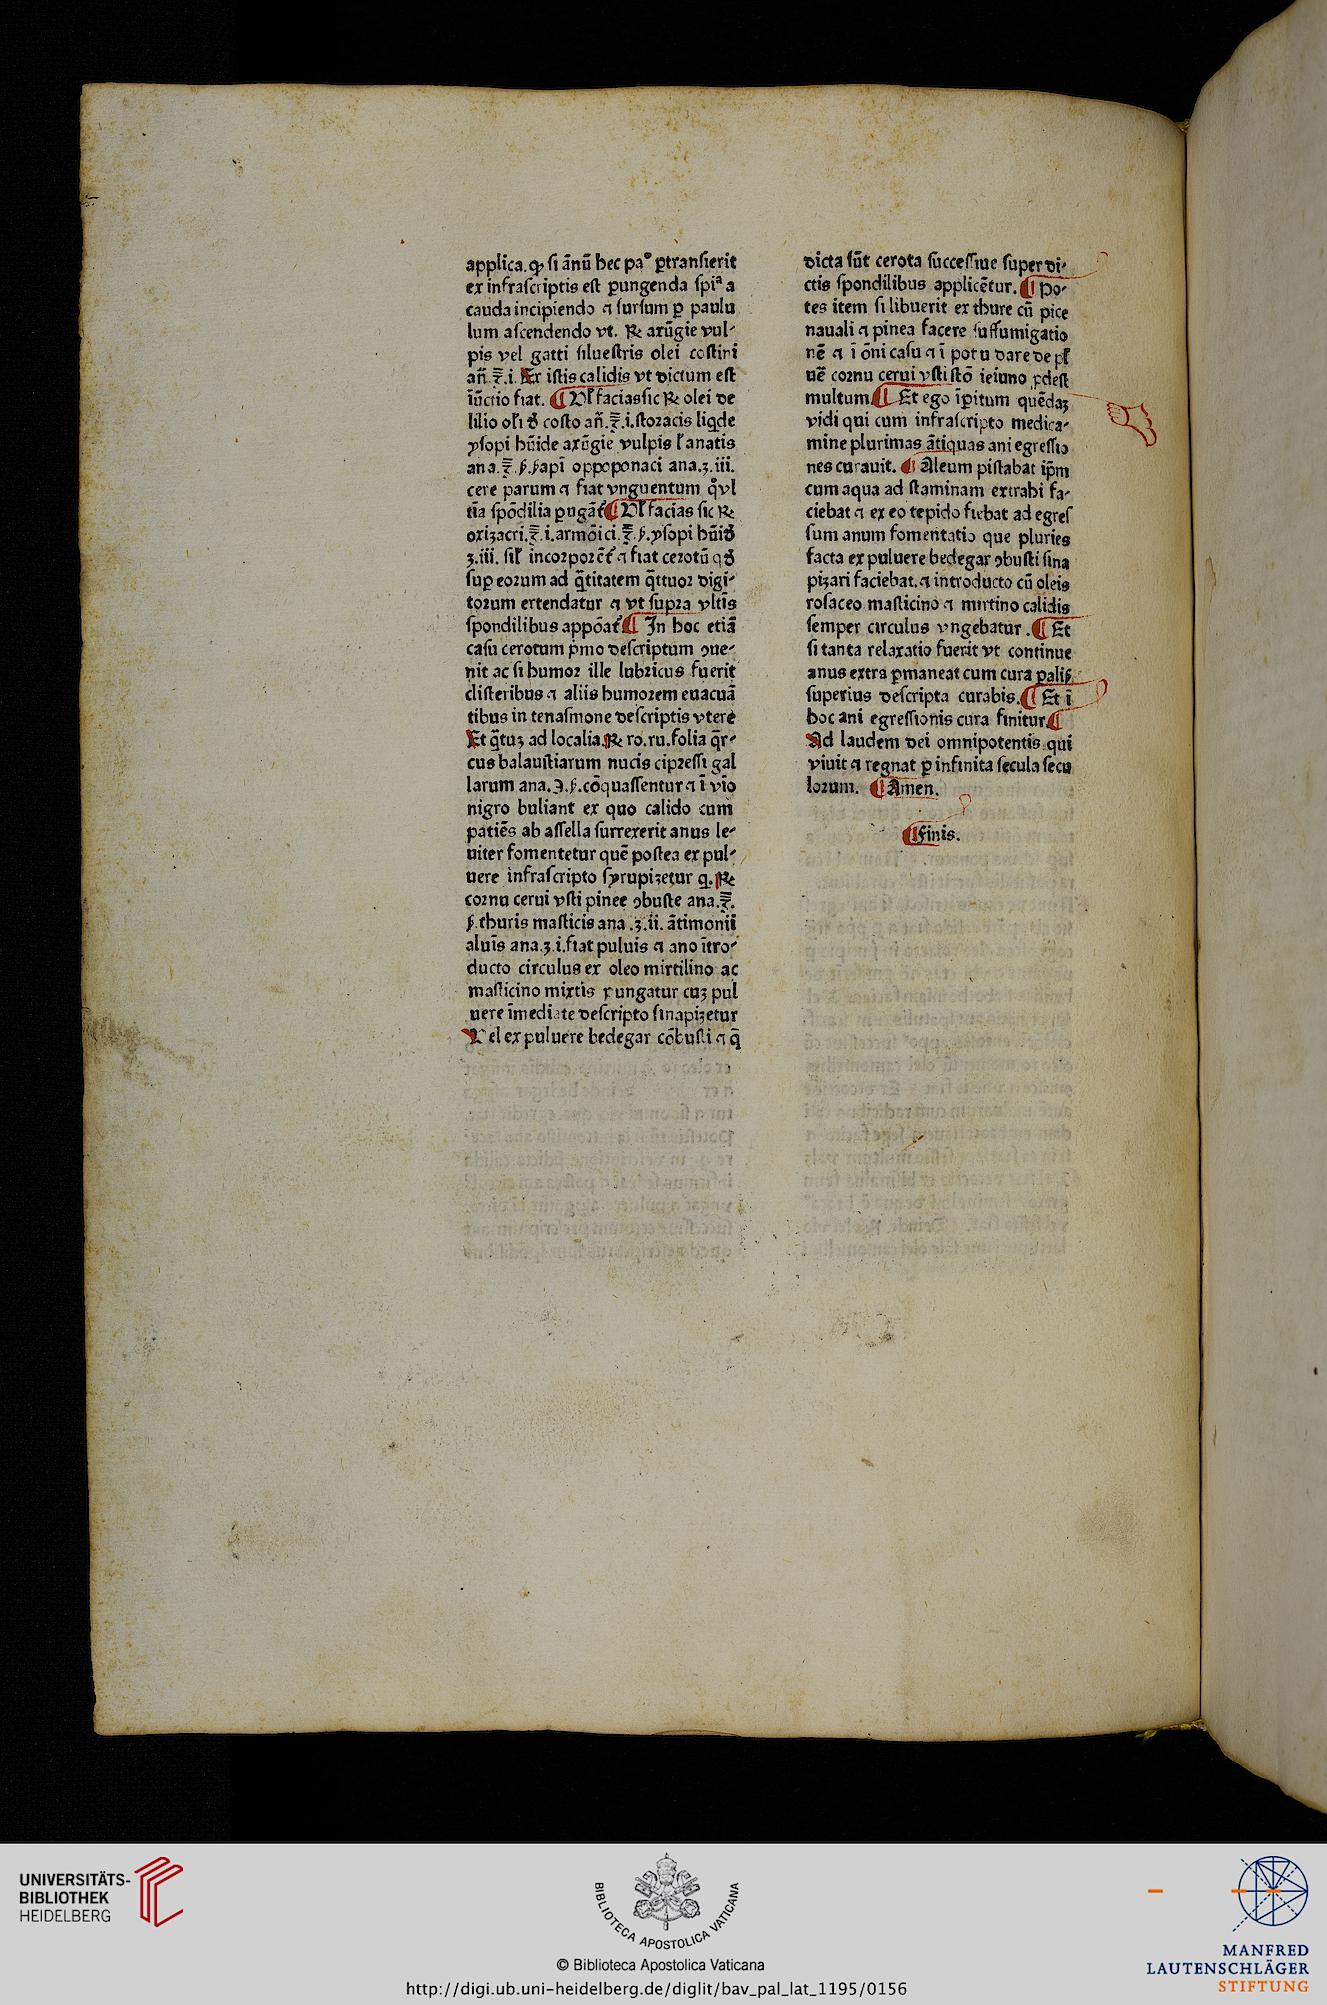 applica. qꝫ ſi ānū hec paº ꝑtranſierit
ex infraſcriptis eſt ꝑungenda ſpiª a
cauda incipiendo ⁊ ſurſum ꝑ paulu
lum aſcendendo vt. ℞ axūgie vul-
pis vel gatti ſilueſtris olei coſtini
añ.℥.i. Ex iſtis calidis vt dictum eſt
iūctio fiat. ¶ Vl̓ facias ſic ℞ olei de
lilio ol̓i đ coſto añ.℥.i.ſtoracis liqde
yſopi hūide axūgie vulpis l̓ anatis
ana.℥.ß.ſapī oppoponaci ana.ʒ.iii.
cere parum ⁊ fiat vnguentum
ſpōdilia ¶ Vl̓ facias ſic ℞
oxizacri.℥.i.armōici.℥.ß.yſopi hūiđ
ʒ.iii. ſil̓ incorporēt᷑ ⁊ fiat cerotū qđ
ſuꝑ eorum ad q̄titatem q̄ttuor digi-
torum extendatur ⁊ vt ſupra vltīs
ſpondilibus appōat᷑ ¶ In hoc etiā
caſu cerotum pmo deſcriptum ꝯue-
nit ac ſi humor ille lubricus fuerit
cliſteribus ⁊ aliis humorem euacuā
tibus in tenaſmone deſcriptis vtere
Et q̄tuꝫ ad localia.℞ ro.ru.folia q̄r-
cus balauſtiarum nucis cipreſſi gal
larum ana.Ʒ.ß.cōquaſſentur ⁊ ī vīo
nigro buliant ex quo calido cum
patiēs ab aſſella ſurrexerit anus le-
uiter fomentetur quē poſtea ex pul-
uere infraſcripto ſyrupizetur q.℞
cornu cerui vſti pinee ꝯbuſte ana.℥.
ß.thuris maſticis ana.ʒ.ii. ātimonii
aluīs ana.ʒ.i.fiat puluis ⁊ ano ītro-
ducto circulus ex oleo mirtilino ac
maſticino mixtis ꝑungatur cuꝫ pul
uere īmediate deſcripto ſinapizetur
Vel ex puluere bedegar cōbuſti ⁊ q̄
dicta ſūt cerota ſucceſſiue ſuper di-
ctis ſpondilibus applicētur. ¶ Po-
tes item ſi libuerit ex thure cū pice
nauali ⁊ pinea facere ſuffumigatio
nē ⁊ ī ōni caſu ⁊ ī potu dare de pl̓
uē cornu cerui vſti ſtō ieiuno ꝓdeſt
multum ¶ Et ego īꝑitum quēdaꝫ
vidi qui cum infraſcripto medica-
mine plurimas ātiquas ani egreſſio
nes curauit. ¶ Aleum piſtabat ip̄m
cum aqua ad ſtaminam extrahi fa-
ciebat ⁊ ex eo tepido fiebat ad egreſ
ſum anum fomentatio que pluries
facta ex puluere bedegar ꝯbuſti ſina
pizari faciebat.⁊ introducto cū oleis
roſaceo maſticino ⁊ mirtino calidis
ſemper circulus vngebatur. ¶ Et
ſi tanta relaxatio fuerit vt continue
anus extra ꝑmaneat cum cura paliſ
ſuperius deſcripta curabis. ¶ Et ī
hoc ani egreſſionis cura finitur ¶
Ad laudem dei omnipotentis qui
viuit ⁊ regnat ꝑ infinita ſecula ſecu
lorum. ¶ Amen.
¶ Finis.
UNIVERSITÄTS-
BIBLIOTHEK
HEIDELBERG
BIBLIOTECA APOSTOLICA VATICANA
© Biblioteca Apostolica Vaticana
http://digi.ub.uni-heidelberg.de/diglit/bav_pal_lat_1195/0156
MANFRED
LAUTENSCHLÄGER
STIFTUNG